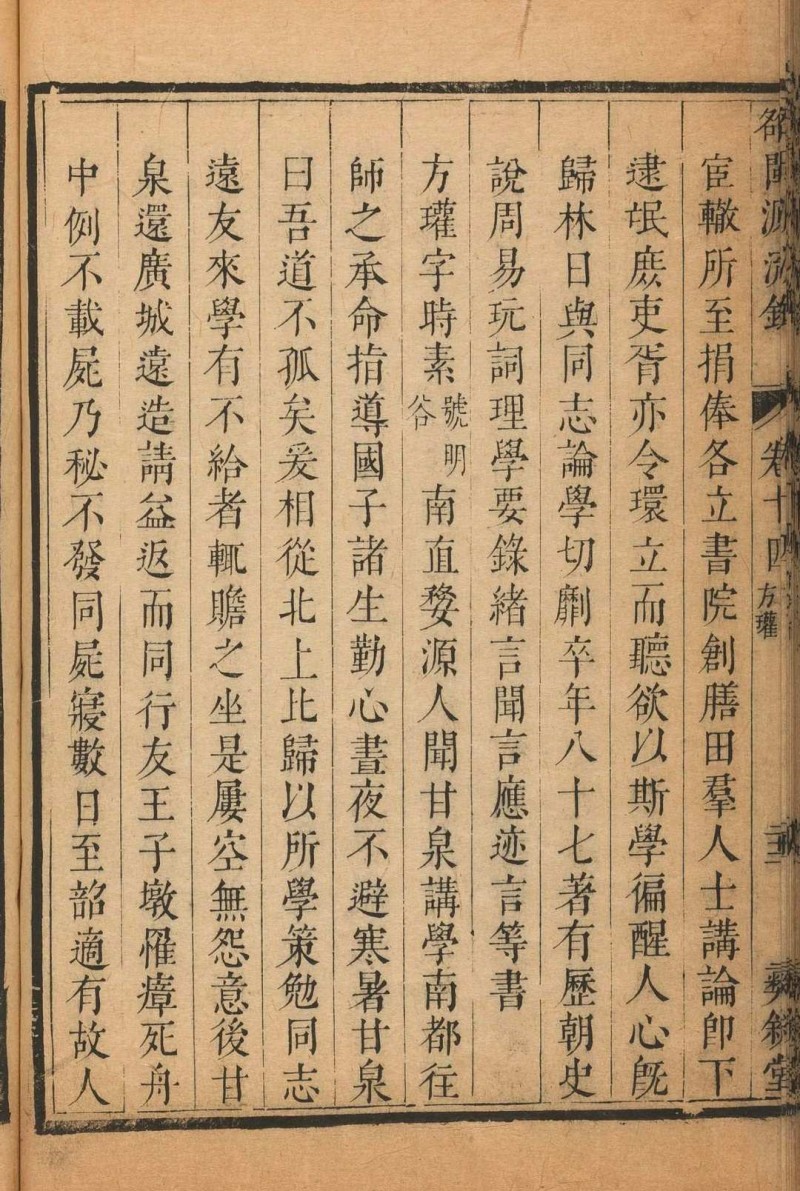 卷十四
方瓘
宦轍所至捐俸各立書院創膳田羣人士講論卽下
逮氓庶吏胥亦令環立而聽欲以斯學徧醒人心旣
歸林日與同志論學切劘卒年八十七著有歷朝史
說周易玩詞理學要錄緒言聞言應迹言等書
方瓘字時素號明谷南直婺源人聞甘泉講學南都往
師之承命指導國子諸生勤心晝夜不避寒暑甘泉
曰吾道不孤矣爰相從北上比歸以所學策勉同志
遠友來學有不給者輒贍之坐是屢空無怨意後甘
泉還廣城遠造請益返而同行友王子墩罹瘴死舟
中例不載屍乃秘不發同屍寢數日至韶適有故人